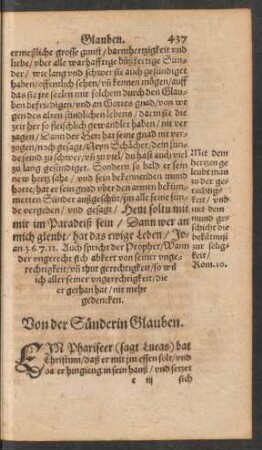 Glauben. 437
ermeßliche grosse gunst / barmhertzigkeit vnd
liebe / vber alle warhafftige bußfertige Sün-
der / wie lang vnd schwer sie auch gesündiget
haben / offentlich sehen / vñ kennen mögen / auff
das sie jre seelen mit solchem durch den Glau-
ben befridigen / vnd an Gottes gnad / von we
gen des alten sündlichen lebens / darin sie die
zeit her so fleischlich gewandlet haben / nit ver
zagen / Dann der Herr hat seine gnad nit ver-
zogen / noch gesagt / Neyn Schächer / dein sun
de seind zu schwer / vñ zu vil / du hast auch viel
zu lang gesündiget. Sondern so bald er sein
new hertz sihe / vnd sein bekennenden mund
horte / hat er sein gnad vber den armen beküm-
merten Sünder außgeschüt / jm alle seine sün-
de vergeben / vnd gesagt / Heut soltu mit
mir im Paradeiß sein / Dann wer an
mich gleubt / hat das ewige Leben / Jo
an 3. 6. 7. 11. Auch spricht der Prophet / Wann
der vngerecht sich abkeret von seiner vnge-
rechtigkeit / vñ thut gerechtigkeit / so wil
ich aller seiner vngerechtigkeiten / die
er gethan hat / nit mehr
gedencken.
Mit dem
hertzen ge
leubt man
zu der ge-
rechtig-
keit / vnd
mit dem
mund ge-
schicht die
bekätnuß
zur selig-
keit /
Rom. 10.
Von der Sünderin Glauben.
EIN Phariseer (sagt Lucas) bat
Christum / daß er mit jm essen solt / vnd
da er hingieng in sein hauß / vnd setzet
e iij sich